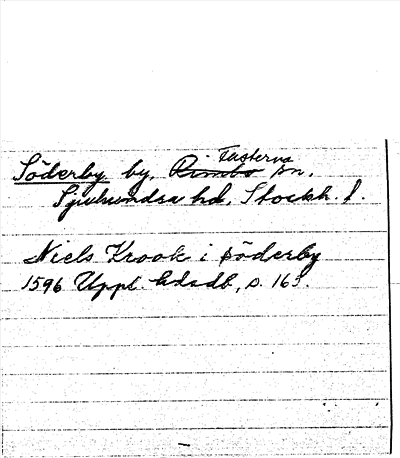 Söderby by, Rimbo Fasterna sn,
Sjuhundra hd, Stockh. l.
Niels Krook i Söderby
1596 Uppl. hdsdb, s. 163.